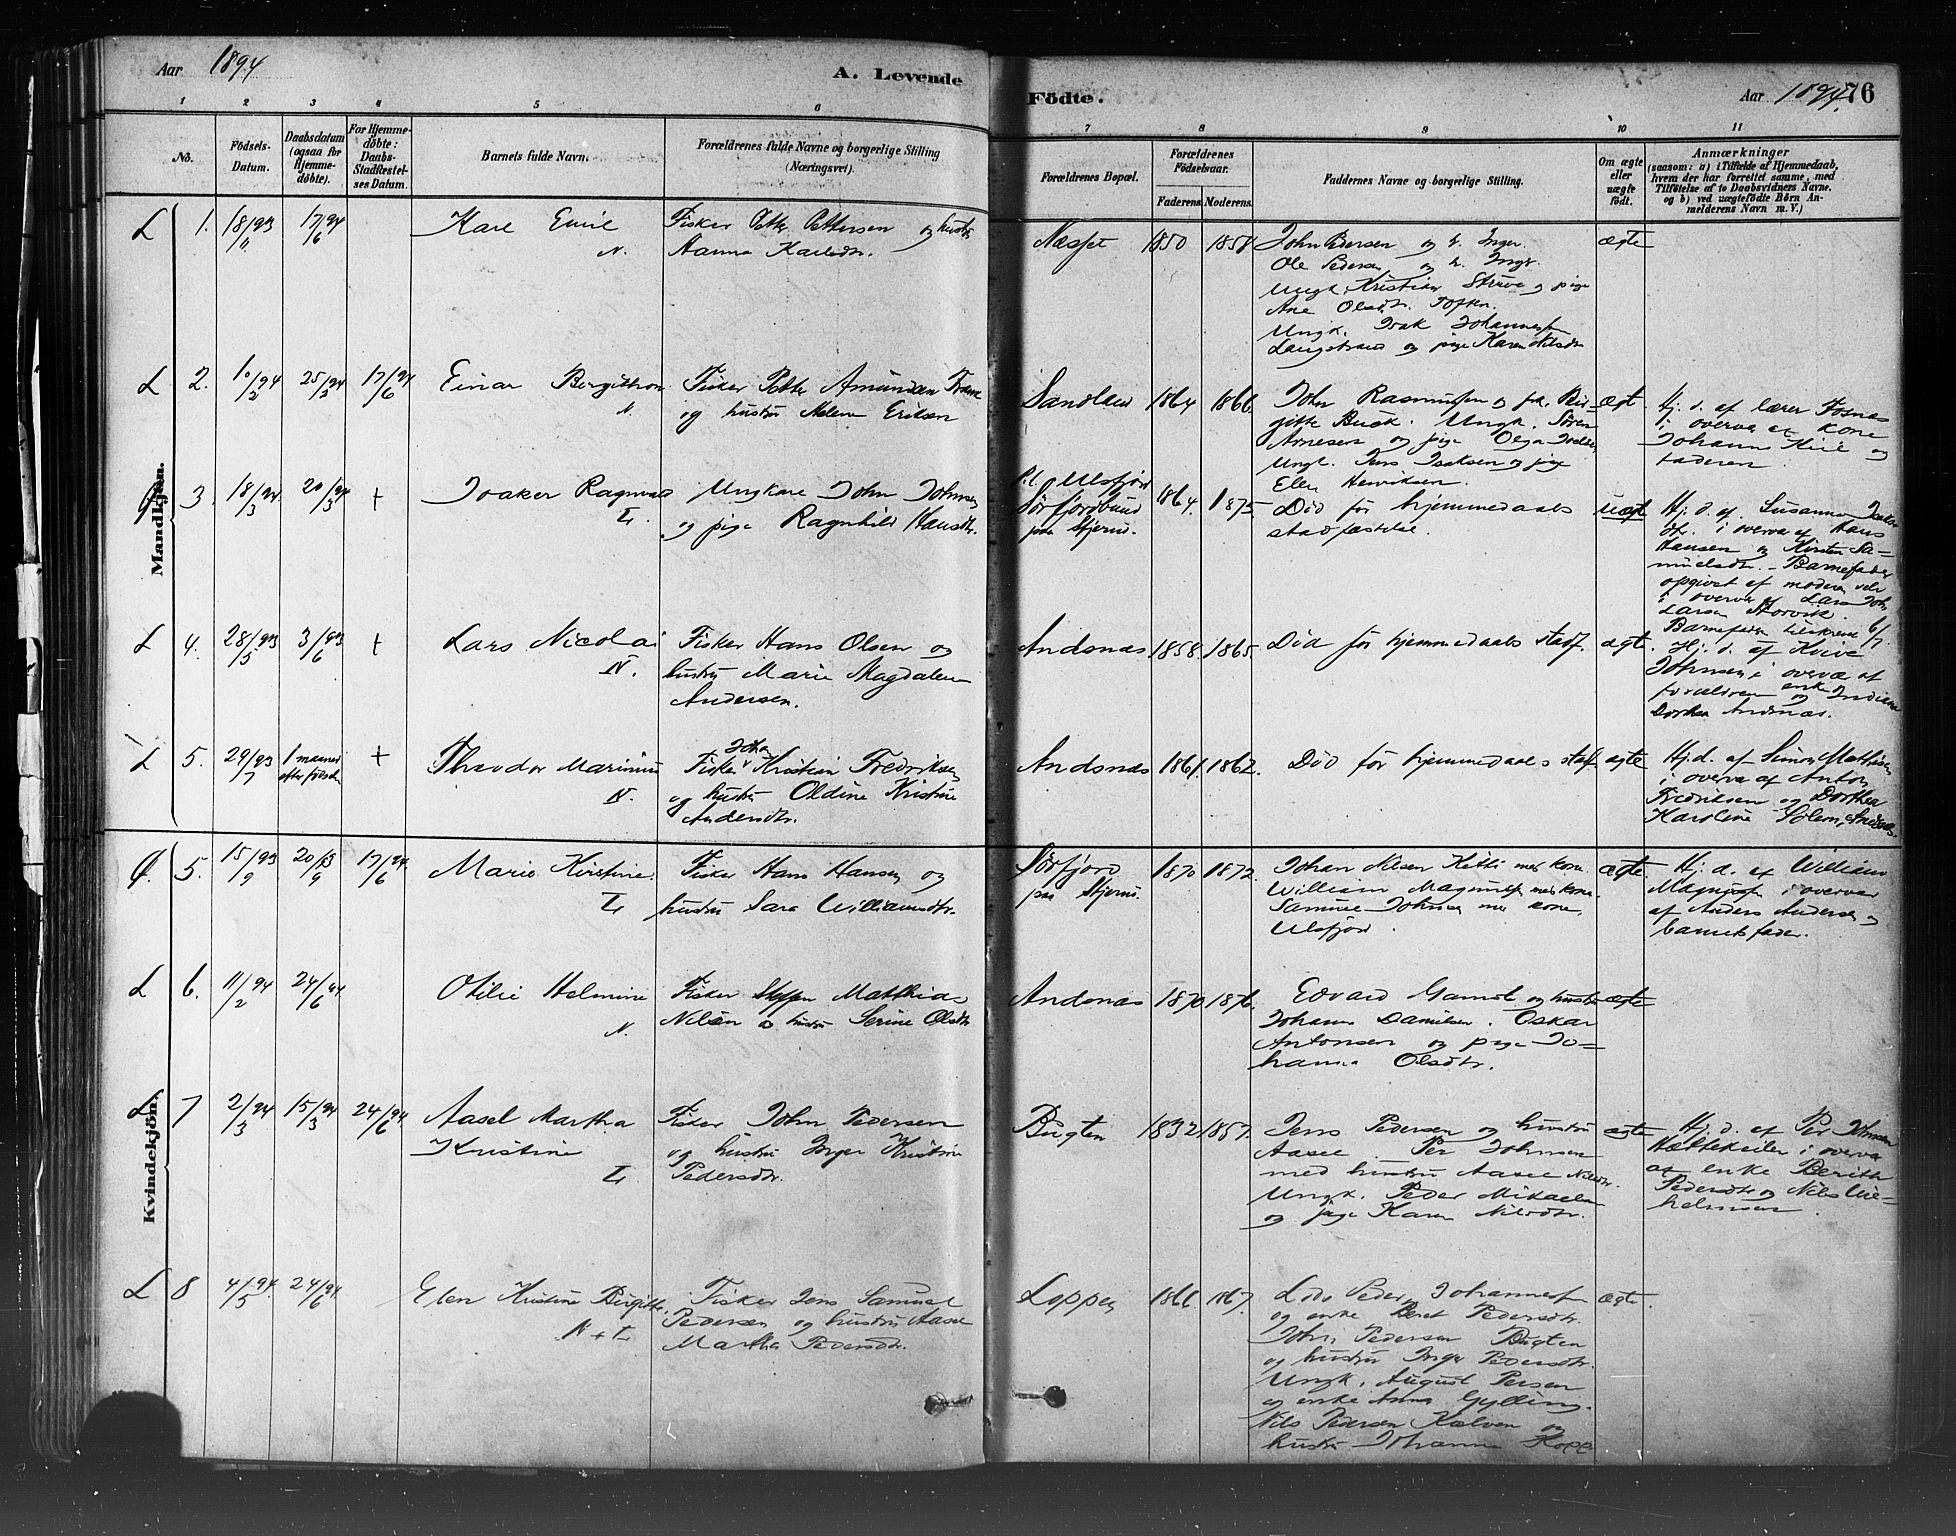 Aar 1894
A. Levende
Födte.
Aar 1894. 76
1 2 3 4 5 6 7 8 9 10 11
No.
Födsels-Datum.
Daabsdatum (ogsaa for Hjemme-döbte).
For Hjemme-döbte: Daabs-Stadfæstel-ses Datum.
Barnets fulde Navn.
Forældrenes fulde Navne og borgerlige Stilling (Næringsvei).
Forældrenes Bopæl.
Forældrenes Födselsaar.
Faderens. Moderens.
Faddernes Navne og borgerlige Stilling.
Om ægte eller uægte födt.
Anmærkninger
(saasom: a) i Tilfælde af Hjemmedaab,
hvem der har forrettet samme, med
Tilföielse af to Daabsvidners Navne.
og b) ved uægtefödte Börn An-
melderens Navn m. V.)
Mandkjön.
L 1. 18/93 11 17/94 6
Karl Emil
N.
Fisker Petter Pettersen og hustru
Hanna Karlsdtr.
Næsset 1850 1857
John Pedersen og h. Inger
Ole Pedersen og h. Inger
Ungk. Kristian Struve og pige
Ane Olsdtr.
Ungk. Isak Johannesen
Langstrand og pige Karen Nilsdtr
ægte
L 2. 10/94 2 25/94 3 17/94 6
Einar Birgitthron
N.
Fisker Petter Amundsen
og hustru Helene Eriksen
Sandland 1864 1866
John Rasmussen og fr. Bir-
gitte Buck. Ungk. Sören
Arnesen og pige Olga
Ungk. Jens Isaksen og pige
Elen Henriksen.
ægt.
Hj. d. af lærer Fosnæs
i overvær af kone
Johanna og
faderen.
3. 18/94 3 20/94 3 +
Joaker Ragnvald
L.
Ungkarl John Johnsen
og pige Ragnhild Hansdtr.
Ulsfjord
Sörfjordbund
paa Stjernö.
1864. 1875.
Död för hjemmedaabs
stadfæstelse.
uægte
Hj. d. af Susanna
i overvær af Hans
Hansen og Kirsten Sa-
muelsdtr. - Barnefader
opgivet af moderen selv
i overvær af Lars
Larsen Storvik.
Barnefader 6/7.
L 4. 28/93 5 3/93 6 +
Lars Nicolai
N.
Fisker Hans Olsen og
hustru Marie Magdalene
Andersen.
Andsnæs 1858. 1865.
Död för hjemmedaabs stadf. ægte.
Hj. d. af
Johnsen i overvær af
forældrene og enke
Dorthea Andsnæs.
L 5. 29/93 7 1 maaned efter födselen +
Theodor Marinius
N.
Fisker Johan Kristian Fredriksen
og hustru Oldine Kristine
Andersdtr.
Andsnæs 1861. 1862.
Död för hjemmedaabs stadf ægte
Hj. d. af Simon Mathisen
i overvær af Anton
Fredriksen og Dorthea
Karoline Solem, Andsnæs.
Kvindekjön.
5. 15/93 9 20/93 9 17/94 6
Marie Kirstine.
L.
Fisker Hans Hansen og
hustru Sara Williamsdtr.
Sörfjord
paa Stjernö.
1870 1872.
Johan Nilsen Kitti med kone
William Magnussen med kone.
Samuel Johnsen med kone,
Ulsfjord.
ægte
Hj. d. af William
Magnussen i overvær
af Anders Andersen og
barnets fader.
L 6. 11/94 2 24/94 6
Otilie Helmine
N.
Fisker Steffen Matthias
Nilsen og hustru Serine Olsdtr
Andsnæs 1870 1876.
Edvard Gamst og hustru
Johanna Danielsen. Oskar
Antonsen og pige Jo-
hanna Olsdtr.
ægte
L 7 2/94 3 15/94 3 24/94 6
Aasel Martha
Kristine
L.
Fisker John Pedersen
og hustru Inger Kristine
Pedersdtr.
Bugten 1832 1857.
Jens Pedersen og hustru
Aasel. Per Johnsen
med hustru Aasel Nilsdtr.
Ungk. Peder Mikaelsen
og pige Karen Nilsdtr.
ægte
Hj. d. af Per Johnsen
i overvær
af enke Berith
Pedersdtr og Nils Vil-
helmsen.
L 8 4/94 5 24/94 6
Elen Kristine Birgitte.
N + L
Fisker Jens Samuel
Pedersen og hustru Aasel
Martha Pedersdtr.
Loppen 1866 1867.
Peder Johannesen
og enke Beret Pedersdtr.
John Pedersen Bugten
og hustru Inger Pedersdtr.
Ungk. August Persen
og enke Anna Gylling.
Nils Pedersen Kalven og
hustru Johanna
ægte.